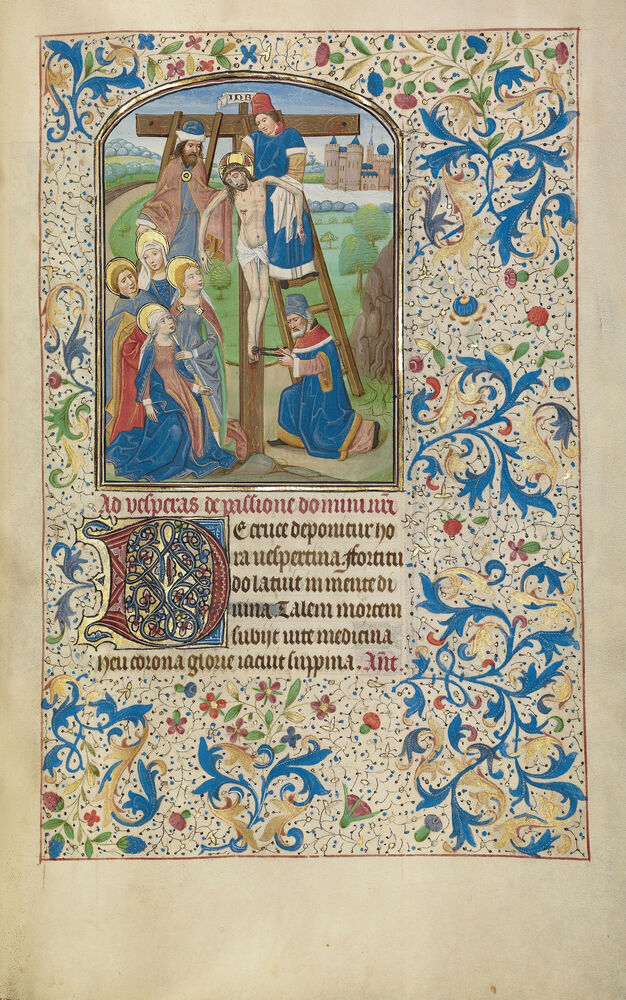 INR
Ad vesperas de passione domini nr̄i
De cruce deponitur ho
ra vespertina ffortitu
do latuit in mente di
uina Talem mortem
subijt vite medicina
heu corona glorie iacuit suppina. Ant̄